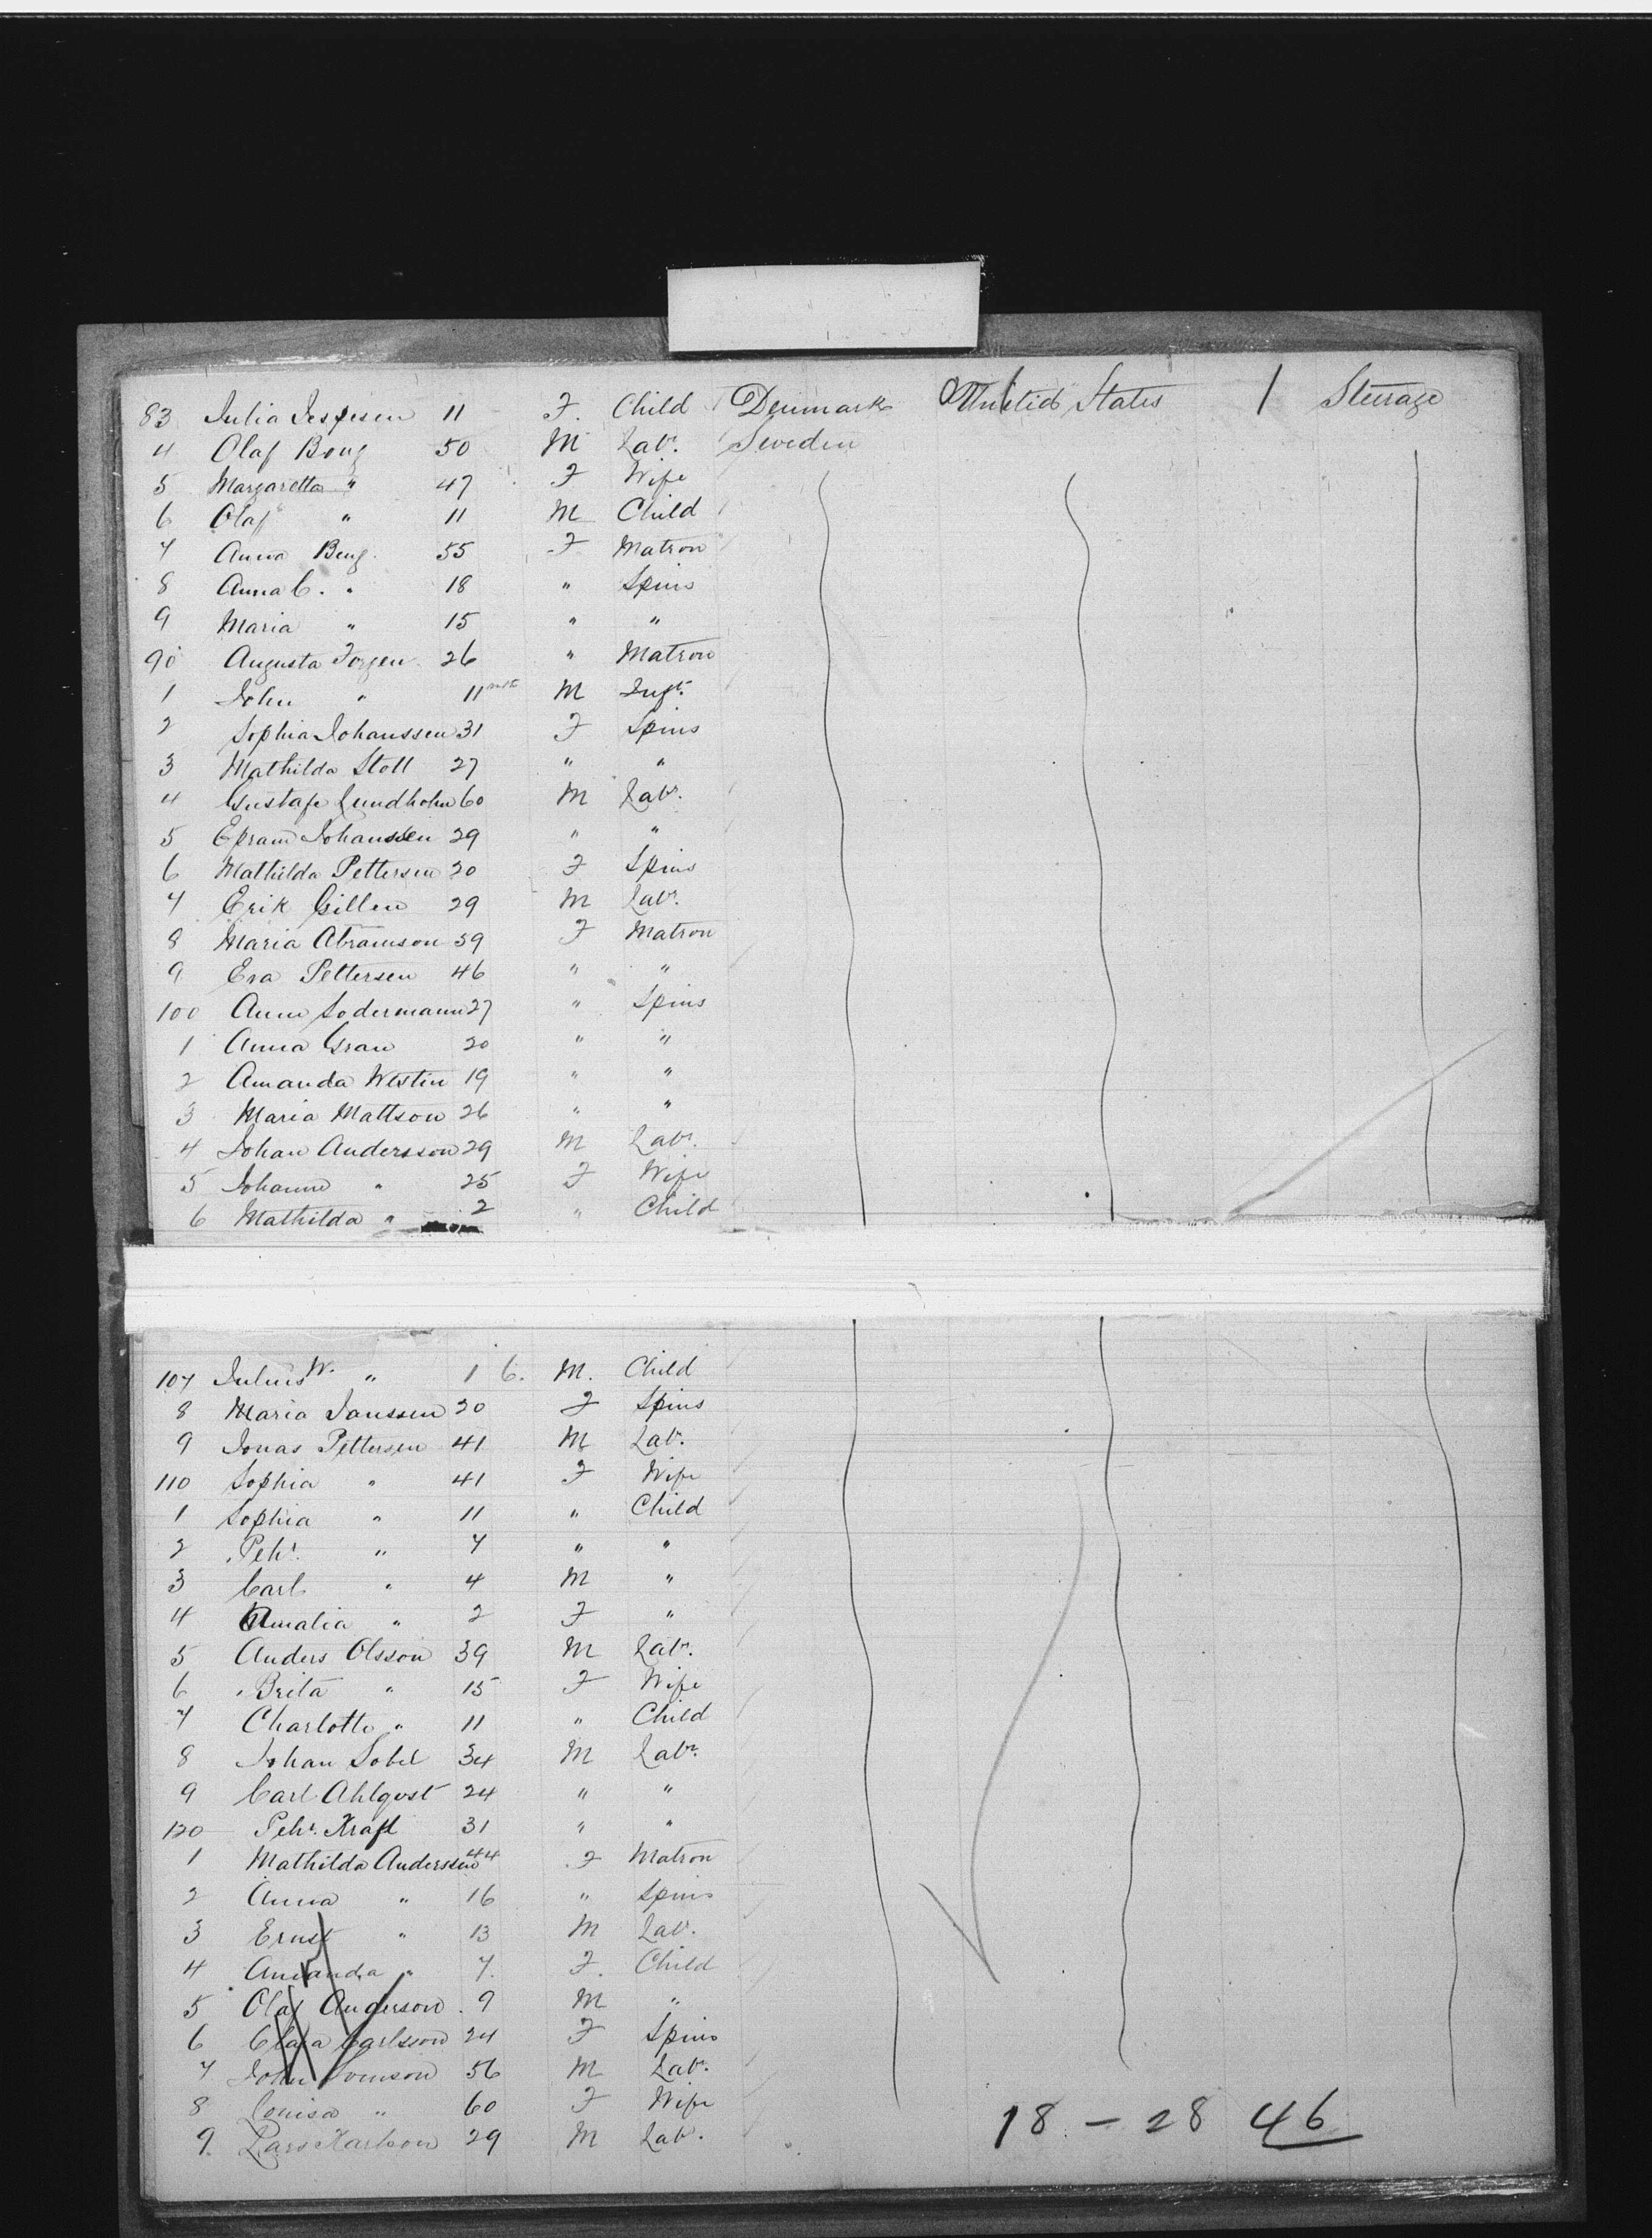 83 Julia Jespesen 11 F. Child Denmark United States 1 Steerage
4 Olaf Bong 50 M Labr. Sweden
5 Margaretta " 47 F Wife
6 Olaf " 11 M Child
7 Anna Beng. 55 F Matron
8 Anna C. " 18 " Spins
9 Maria " 15 " "
90 Augusta Forgen 26 " Matron
1 John " 11 mth M Inft.
2 Sophia Johanssen 31 F Spins
3 Mathilda Stoll 27 " "
4 Gustafe Lundholm 60 M Labr.
5 Epram Johanssen 29 " "
6 Mathilda Pettersen 20 F Spins
7 Erik Gillen 29 M Labr.
8 Maria Abramson 39 F Matron
9 Eva Pettersen 46 " "
100 Anna Sodermann 27 " Spins
1 Anna Gran 20 " "
2 Amanda Westin 19 " "
3 Maria Mattson 26 " "
4 Johan Andersson 29 M Labr.
5 Johanna " 25 F Wife
6 Mathilda " 2 " Child
107 Julius W. " 1 6. M. Child
8 Maria Janssen 20 F Spins
9 Jonas Pettersen 41 M Labr.
110 Sophia " 41 F Wife
1 Sophia " 11 " Child
2 Pehr. " 7 " "
3 Carl " 4 M "
4 Amalia " 2 F "
5 Anders Olsson 39 M Labr.
6 Brita " 15 F Wife
7 Charlotte " 11 " Child
8 Johan Sobel 34 M Labr.
9 Carl Ahlqvst 24 " "
120 Pehr. Kraft 31 " "
1 Mathilda Anderssen 44 F Matron
2 Anna " 16 " Spins
3 Ernst " 13 M Labr.
4 Amanda " 7. F. Child
5 Olaf Anderson 9 M "
6 Clara Carlsson 24 F Spins
7 John 56 M Labr.
8 Louisa " 60 F Wife
9. Lars Karlson 29 M Labr.
18 - 28 46